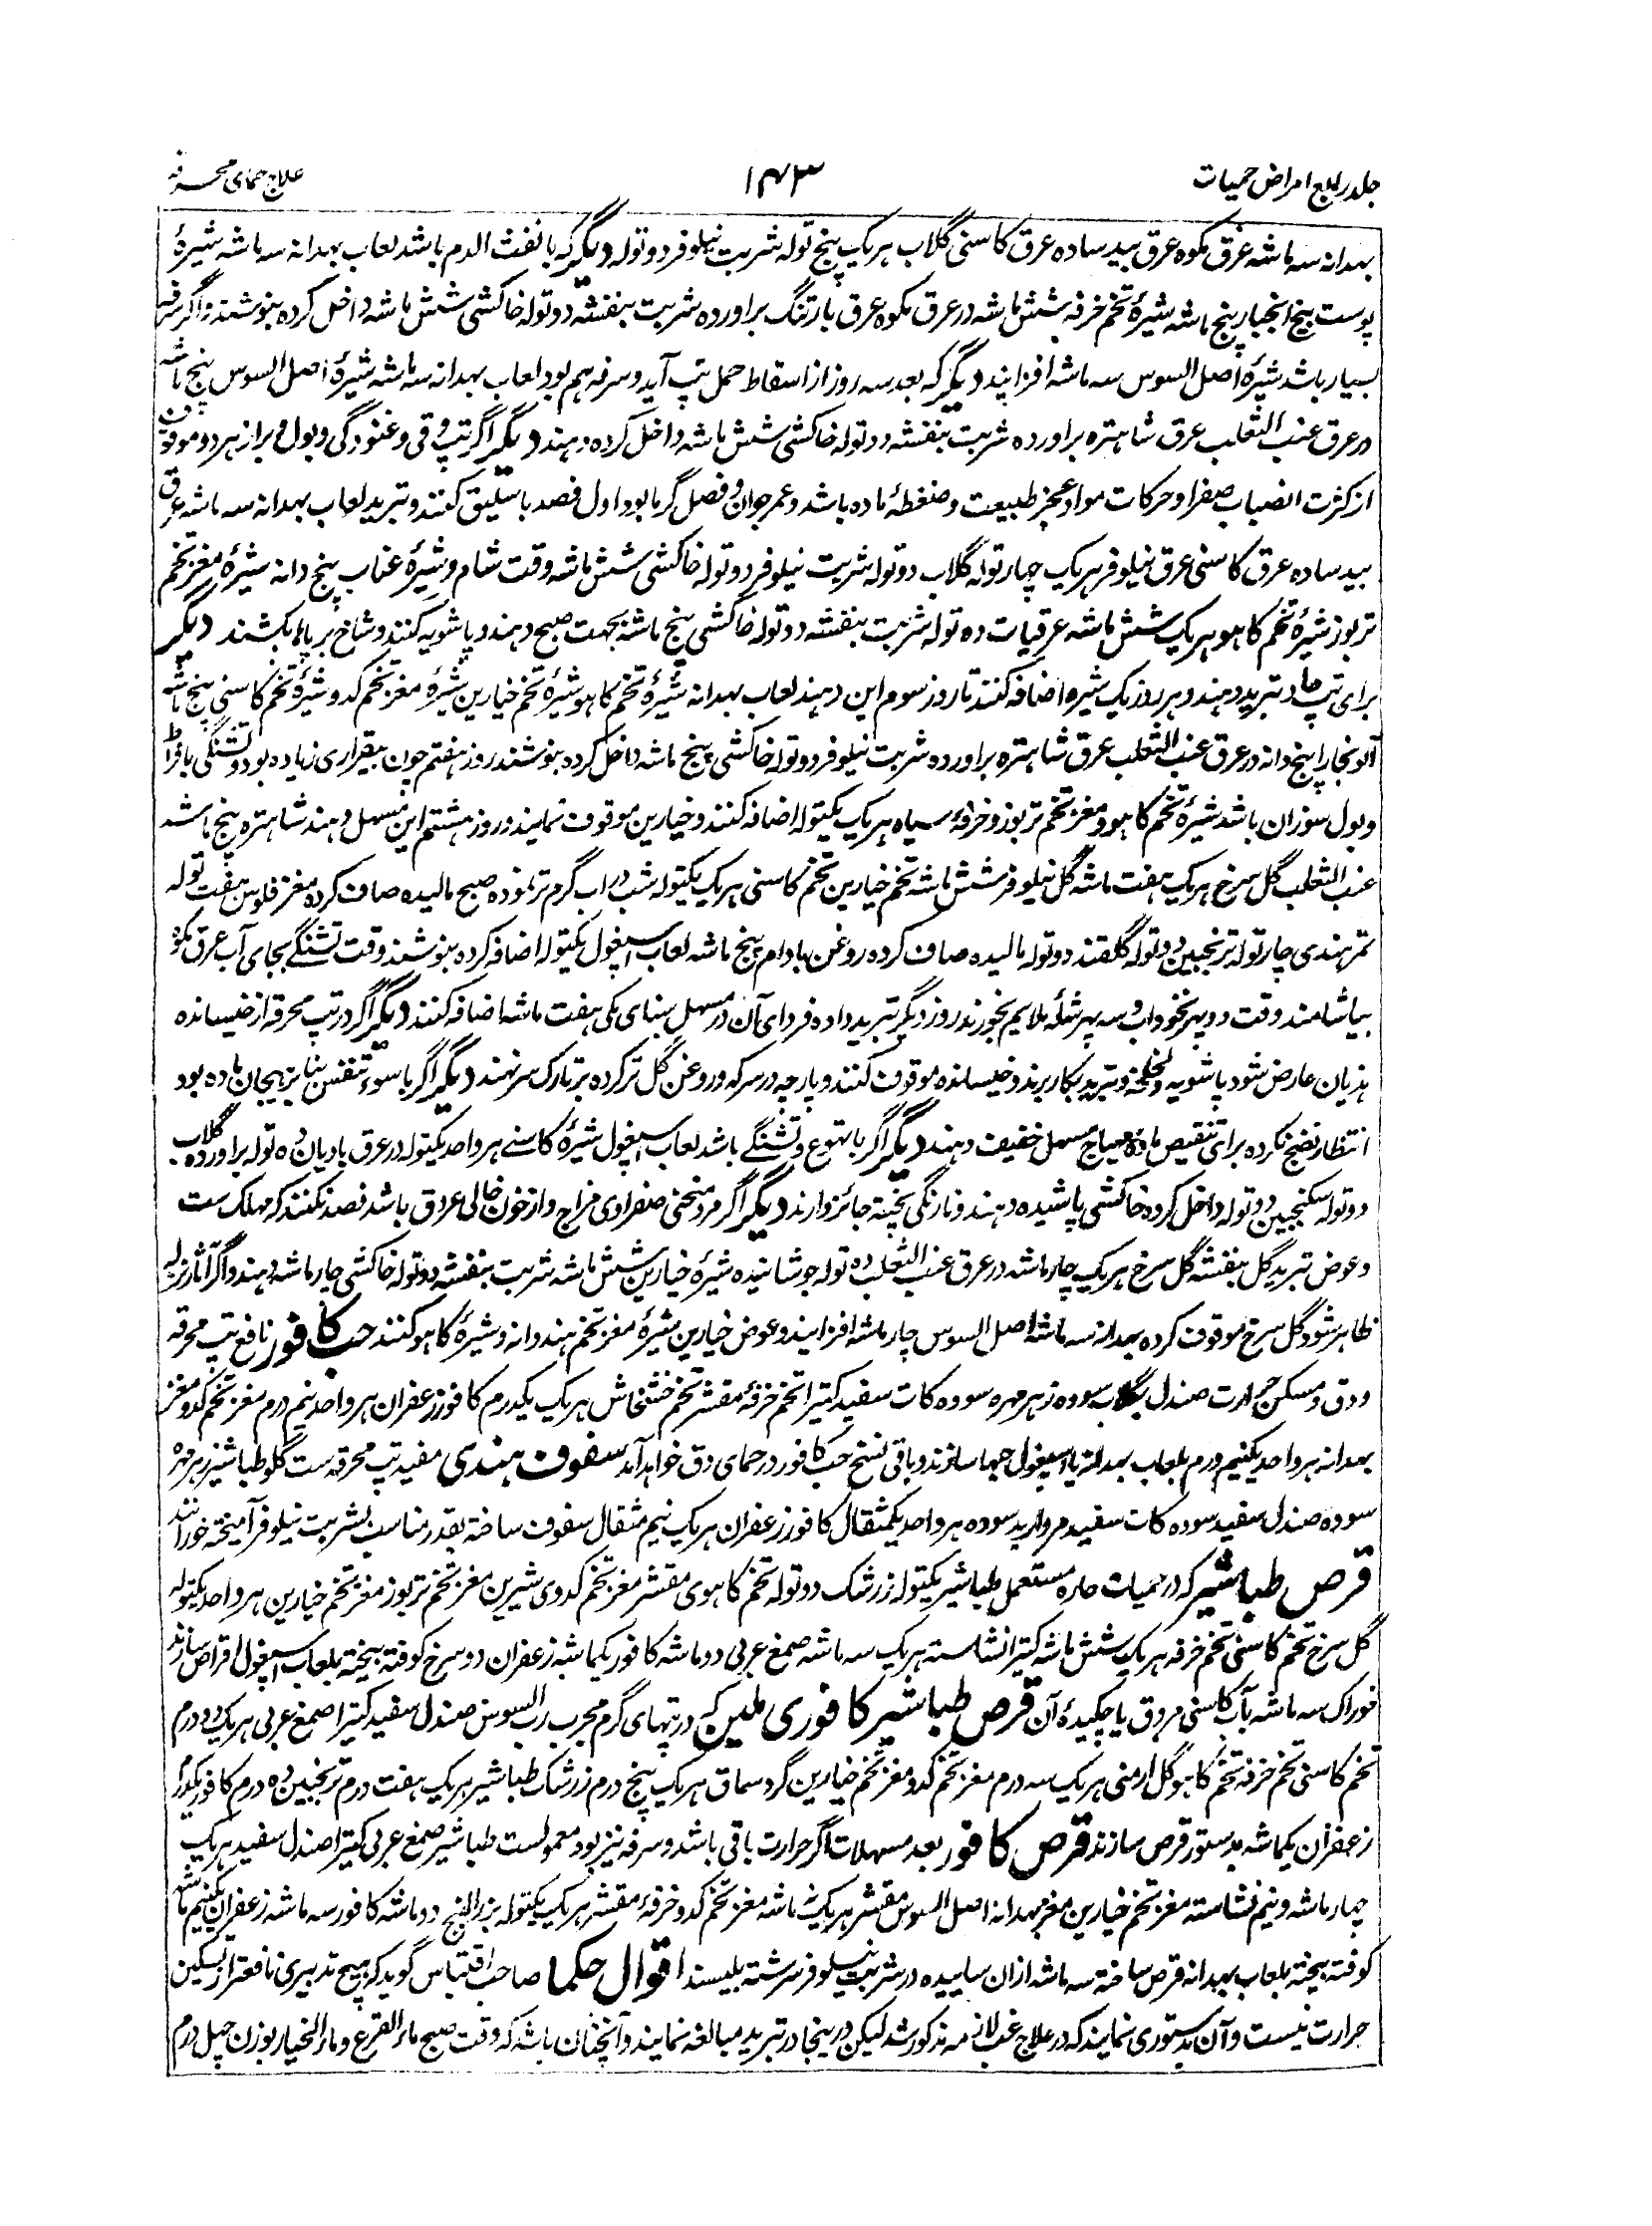 جلد رابع امراض حمیات
۱۴۳
علاج حمای محرقه
بهدانه سه ماشه عرق مکوه عرق بید ساده عرق کاسنی گلاب هر یک پنج توله شربت نیلوفر دو توله دیگر که با نفث الدم باشد لعاب بهدانه سه ماشه شیرهٔ
پوست بیخ انجبار پنج ماشه شیرهٔ تخم خرفه شش ماشه در عرق مکوه عرق بارتنگ برآورده شربت بنفشه دو توله خاکشی شش ماشه داخل کرده بنوشند و اگر سرفه
بسیار باشد شیرهٔ اصل السوس سه ماشه افزایند دیگر که بعد سه روز از اسقاط حمل تپ آید و سرفه هم بود لعاب بهدانه سه ماشه شیرهٔ اصل السوس پنج ماشه
در عرق عنب الثعلب عرق شاهتره برآورده شربت بنفشه دو توله خاکشی شش ماشه داخل کرده دهند دیگر اگر تپ و قی و غنودگی و بول و براز هر دو موقوف
از کثرت انصباب صفرا و حرکات مواد عجز طبیعت و ضغطهٔ ماده باشد و عمر جوان و فصل گرما بود اول فصد باسلیق کنند و تبرید لعاب بهدانه سه ماشه عرق
بید ساده عرق کاسنی عرق نیلوفر هر یک چهار توله گلاب دو توله شربت نیلوفر دو توله خاکشی شش ماشه وقت شام و شیرهٔ عناب پنج دانه شیرهٔ مغز تخم
تربوز شیرهٔ تخم کاهو هر یک شش ماشه عرقیات ده توله شربت بنفشه دو توله خاکشی پنج ماشه بجهت صبح دهند و پاشویه کنند و شاخ بر پاها بکشند دیگر
برای تپ حاد تبرید دهند و هر روز یک شیره اضافه کنند تا روز سوم این دهند لعاب بهدانه شیرهٔ تخم کاهو شیرهٔ تخم خیارین شیرهٔ مغز تخم کدو شیرهٔ تخم کاسنی پنج ماشه
آلو بخارا پنج دانه در عرق عنب الثعلب عرق شاهتره برآورده شربت نیلوفر دو توله خاکشی پنج ماشه داخل کرده بنوشند روز هفتم چون بیقراری زیاده بود و تشنگی بافراط
و بول سوزان باشد شیرهٔ تخم کاهو و مغز تخم تربوز و خرفهٔ سیاه هر یک یکتوله اضافه کنند و خیارین موقوف نمایند و روز هشتم این مسهل دهند شاهتره پنج ماشه
عنب الثعلب گل سرخ هر یک هفت ماشه گل نیلوفر شش ماشه تخم خیارین تخم کاسنی هر یک یکتوله شب در آب گرم تر نموده صبح مالیده صاف کرده مغز فلوس هفت توله
تمر هندی چار توله ترنجبین دو توله گلقند دو توله مالیده صاف کرده روغن بادام پنج ماشه لعاب اسپغول یکتوله اضافه کرده بنوشند وقت تشنگی بجای آب عرق مکوه
بیاشامند وقت دوپهر نخود آب و سه پهر شله ملایم بخورند روز دیگر تبرید داده فردای آن در مسهل سنای مکی هفت ماشه اضافه کنند دیگر اگر در تپ محرقه از خیسانده
هذیان عارض شود پاشویه و لخلخه و تبرید بکار برند و خیسانده موقوف کنند و پارچه در سرکه و روغن گل تر کرده بر تارک سر نهند دیگر اگر با سوء تنفس بنا بر هیجان ماده بود
انتظار نضج نکرده برای تنقیص مادهٔ مهیاج مسهل خفیف دهند دیگر اگر با تهوع و تشنگی باشد لعاب اسپغول شیرهٔ کاسنی هر واحد یکتوله در عرق بادیان ده توله برآورده گلاب
دو توله سکنجبین دو توله داخل کرده خاکشی پاشیده دهند و نارنگی پخته جائز دارند دیگر اگر مرد منحنی صفراوی مزاج و از خون خالی عروق باشد فصد نکنند که مهلک ست
و عوض تبرید گل بنفشه گل سرخ هر یک چار ماشه در عرق عنب الثعلب ده توله جوشانیده شیرهٔ خیارین شش ماشه شربت بنفشه دو توله خاکشی چار ماشه دهند و اگر آثار نزله
ظاهر شود گل سرخ موقوف کرده بهدانه سه ماشه اصل السوس چار ماشه افزایند و عوض خیارین شیرهٔ مغز تخم هندوانه و شیرهٔ کاهو کنند حب کافور نافع تپ محرقه
و دق و مسکن حرارت صندل بگلاب سوده زهر مهره سوده کات سفید کتیرا تخم خرفهٔ مقشر تخم خشخاش هر یک یکدرم کافور زعفران هر واحد نیم درم مغز تخم کدو مغز
بهدانه هر واحد یکنیم درم بلعاب بهدانه یا اسپغول حبها سازند و باقی نسخ حب کافور در حمای دق خواهد آمد سفوف هندی مفید تپ محرقه ست گلو طباشیر زهر مهره
سوده صندل سفید سوده کات سفید مروارید سوده هر واحد یکمثقال کافور زعفران هر یک نیم مثقال سفوف ساخته بقدر مناسب بشربت نیلوفر آمیخته خورانند
قرص طباشیر که در حمیات حاره مستعمل طباشیر یکتوله زرشک دو توله تخم کاهوی مقشر مغز تخم کدوی شیرین مغز تخم تربوز مغز تخم خیارین هر واحد یکتوله
گل سرخ تخم کاسنی تخم خرفه هر یک شش ماشه کتیرا نشاسته هر یک سه ماشه صمغ عربی دو ماشه کافور یکماشه زعفران دو سرخ کوفته بیخته بلعاب اسپغول اقراص سازند
خوراک سه ماشه بآب کاسنی مروق یا چکیدهٔ آن قرص طباشیر کافوری ملین که در تپهای گرم مجرب رب السوس صندل سفید کتیرا صمغ عربی هر یک دو درم
تخم کاسنی تخم خرفه تخم کاهو گل ارمنی هر یک سه درم مغز تخم کدو مغز تخم خیارین گرد سماق هر یک پنج درم زرشک طباشیر هر یک هفت درم ترنجبین ده درم کافور یکدرم
زعفران یکماشه بدستور قرص سازند قرص کافور بعد مسهلات اگر حرارت باقی باشد و سرفه نیز بود معمولست طباشیر صمغ عربی کتیرا صندل سفید هر یک
چهار ماشه و نیم نشاسته مغز تخم خیارین مغز بهدانه اصل السوس مقشر هر یک نه ماشه مغز تخم کدو خرفهٔ مقشر هر یک یکتوله بزرالبنج دو ماشه کافور سه ماشه زعفران یکنیم ماشه
کوفته بیخته بلعاب بهدانه قرص ساخته سه ماشه ازان ساییده در شربت نیلوفر سرشته بلیسند اقوال حکما صاحب اقتباس گوید که هیچ تدبیری نافعتر از تسکین
حرارت نیست و آن بدستوری نمایند که در علاج غب لازمه مذکور شد لیکن درینجا در تبرید مبالغه نمایند و آنچنان باشد که وقت صبح ماء القرع و ماء الخیار بوزن چهل درم